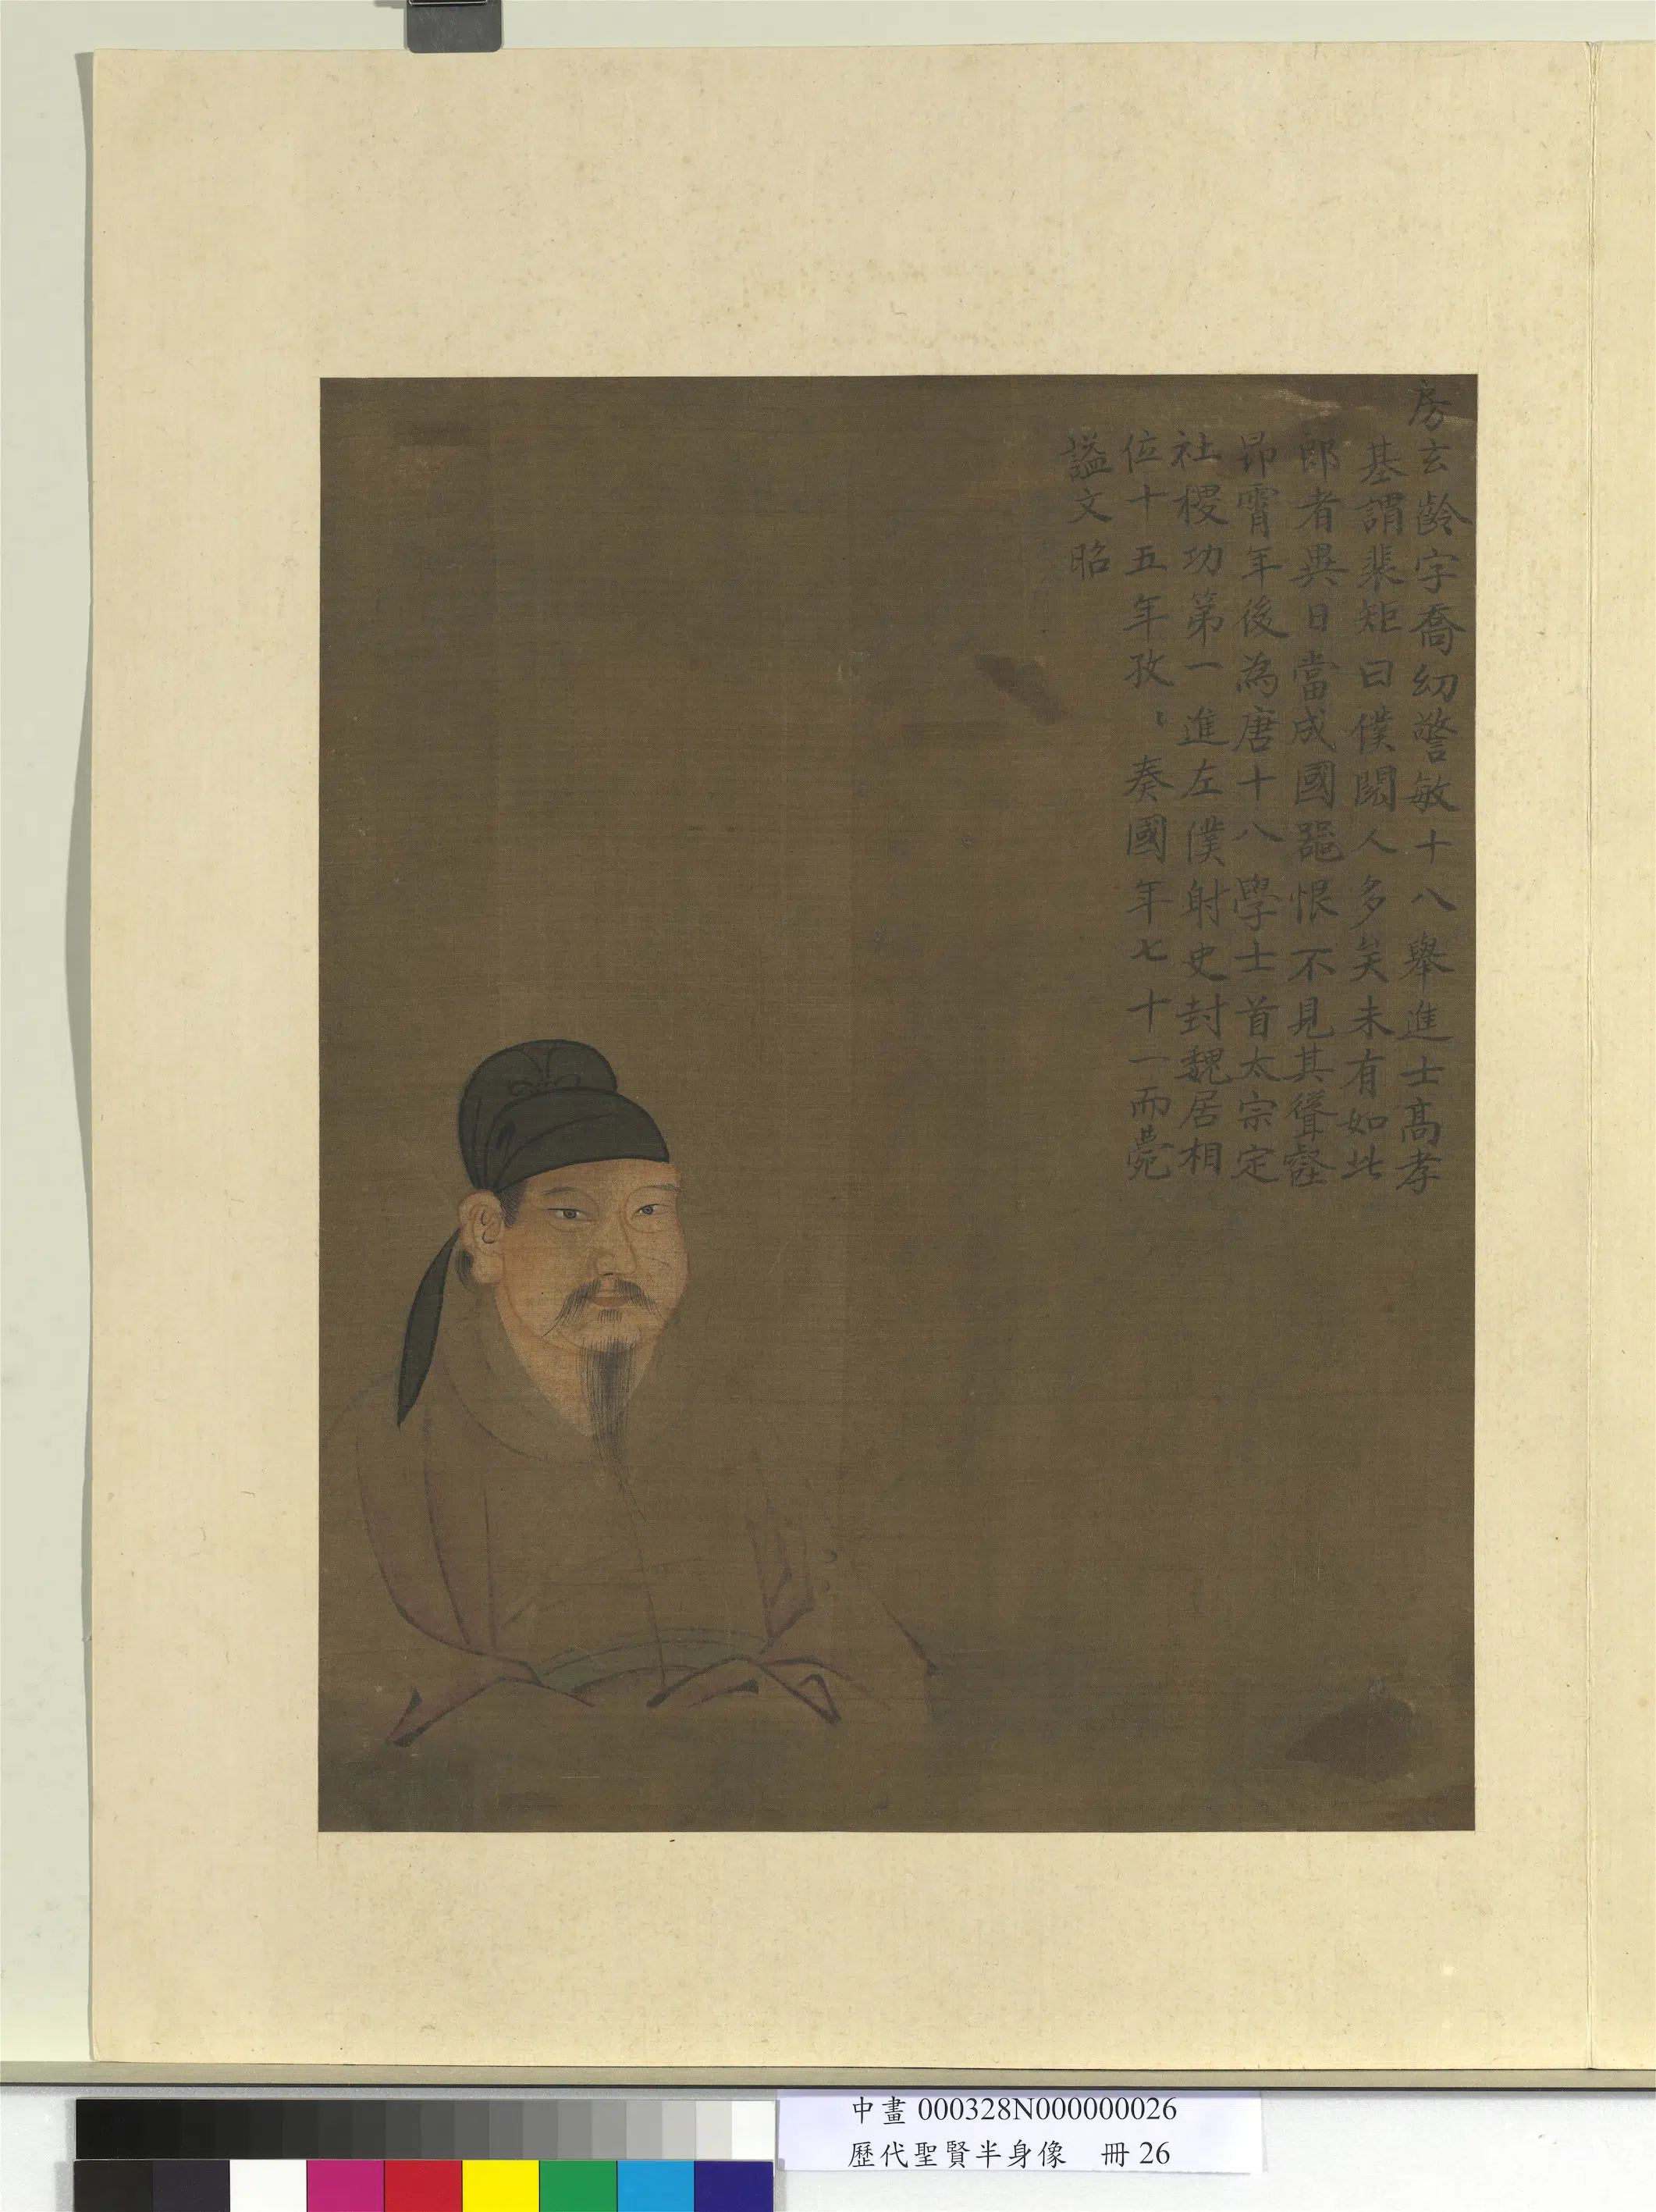 房玄齡字喬幼警敏十八舉進士髙孝
基謂裴矩曰僕閱人多矣未有如此
郎者異日當成國器恨不見其聳壑
昂霄年後為唐十八學士首太宗定
社稷功第一進左僕射史封魏居相
位十五年孜〻奏國年七十一而薨
謚文昭
中畫 000328N000000026
歷代聖賢半身像 冊 26